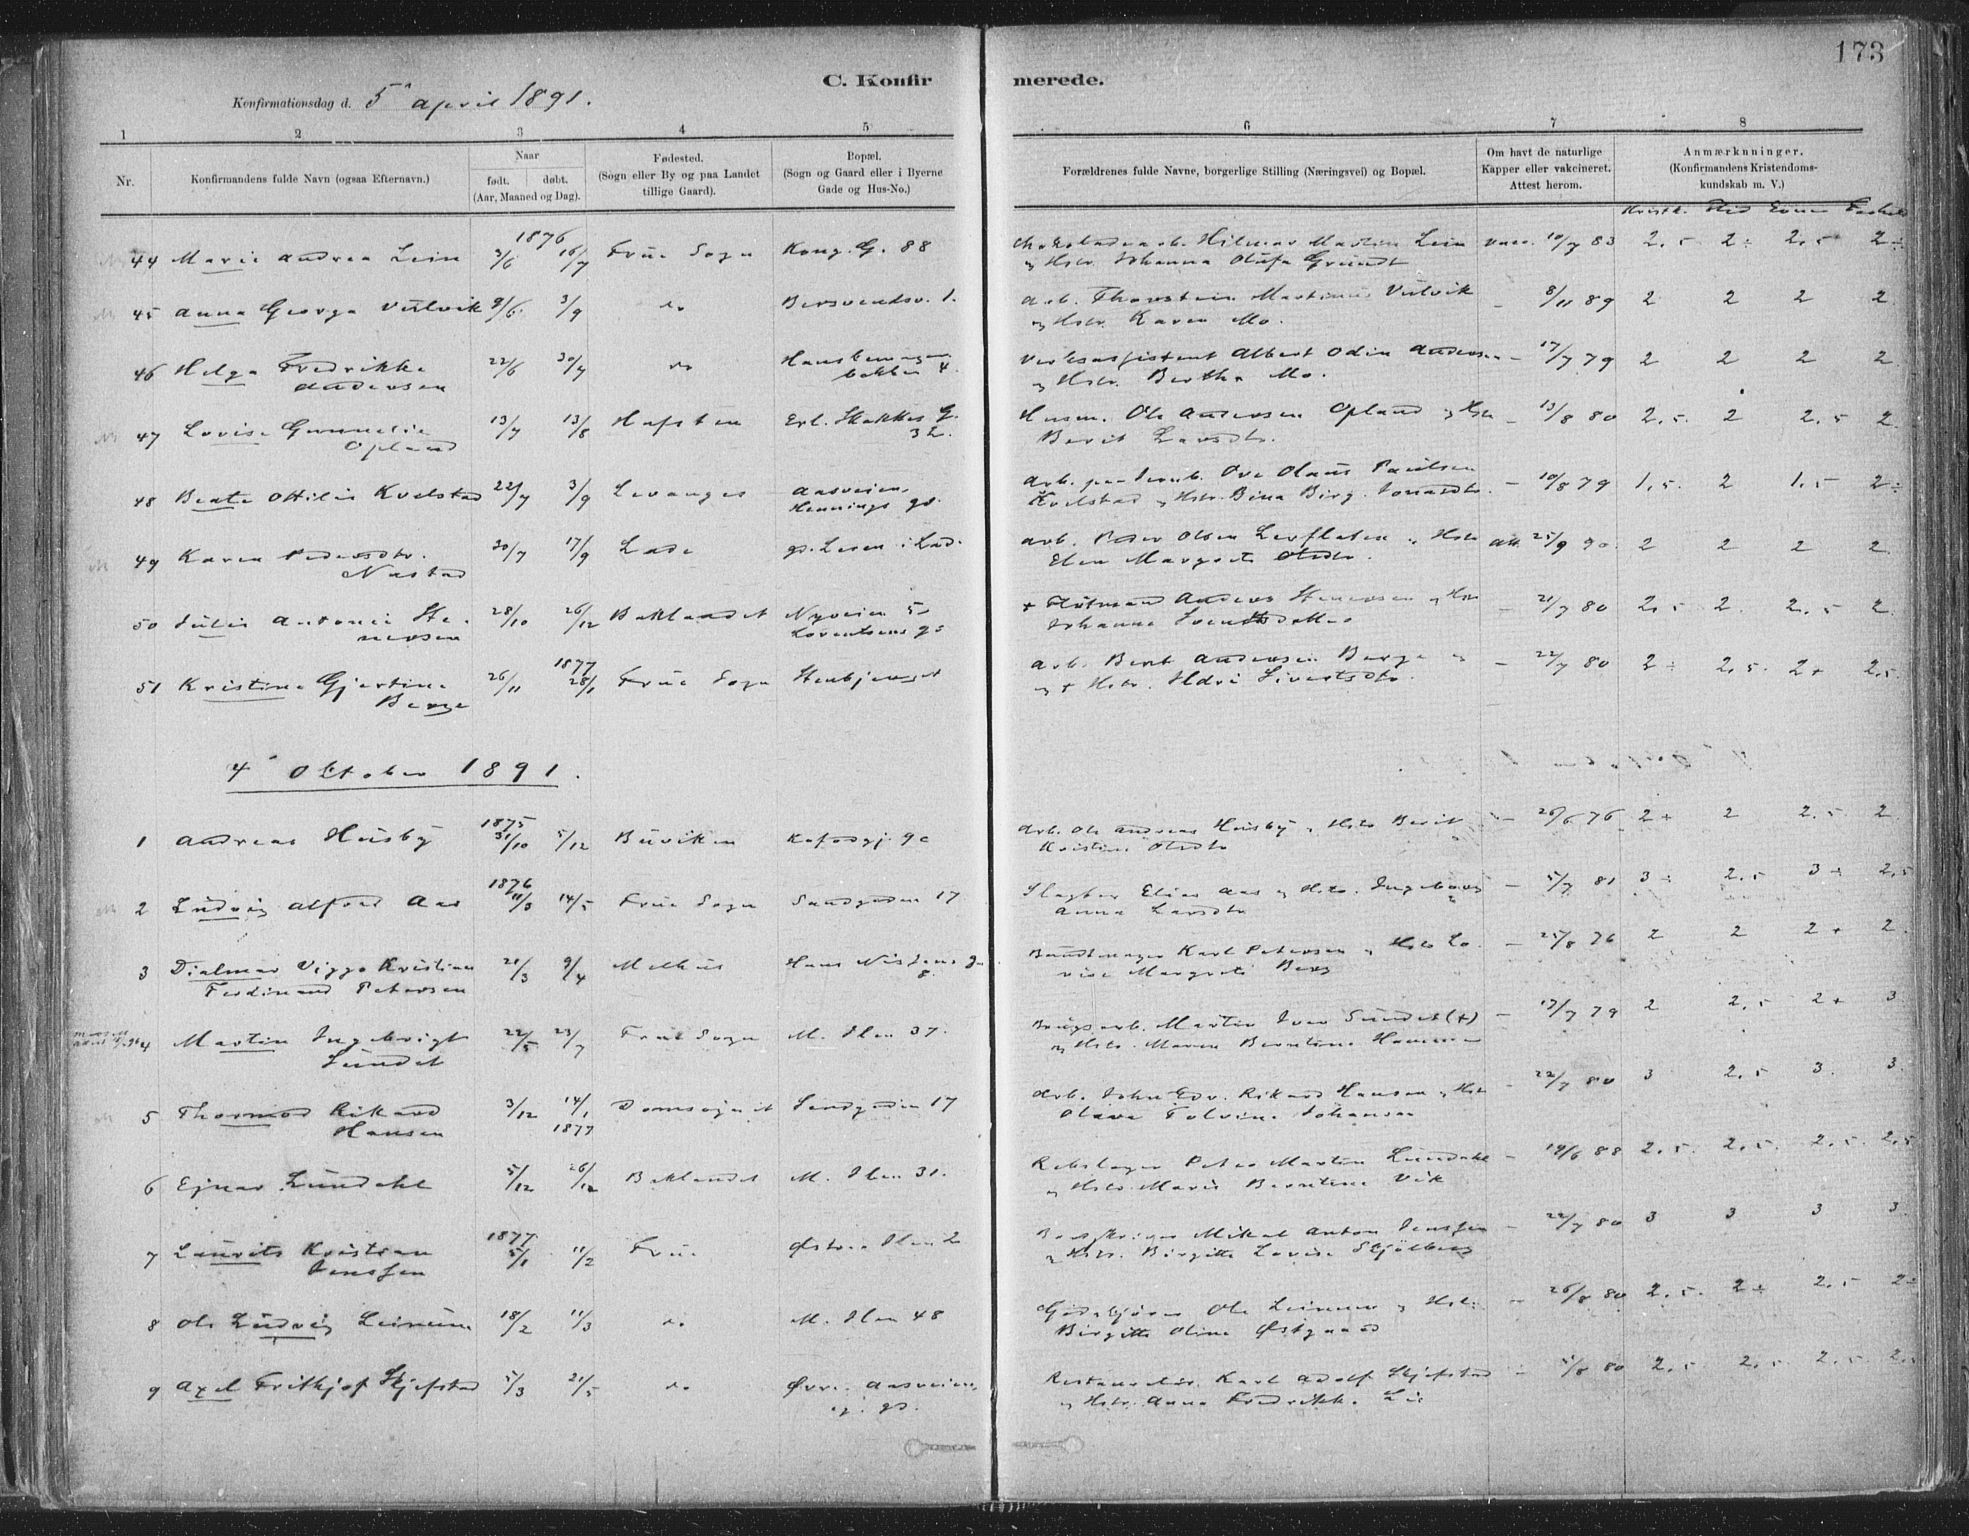 173
C. Konfirmerede.
Konfirmationsdag d. 5' april 1891.
1 2 3 4 5 6 7 8
Nr.
Konfirmandens fulde Navn (ogsaa Efternavn.)
Naar
født. døbt.
(Aar, Maaned og Dag).
Fødested.
(Sogn eller By og paa Landet
tillige Gaard).
Bopæl.
(Sogn og Gaard eller i Byerne
Gade og Hus-No.)
Forældrenes fulde Navne, borgerlige Stilling (Næringsvei) og Bopæl.
Om havt de naturlige
Kapper eller vakcineret.
Attest herom.
Anmærkninger.
(Konfirmandens Kristendoms-
kundskab m. V.)
Kristk. Flid Evner Forhold
1876
44 Marie Andrea Lein 3/6 16/7 Frue Sogn Kong. G. 88 Hilmar Martin Lein vacc. 10/7 83 2,5 2÷ 2,5 2÷
og Hstr. Johanna Olufa Grundt
45 Anna Georga Vulvik 9/6 3/9 do Bersvendsv. 1. Arb. Thorstein Martinus Vulvik – 8/11 89 2 2 2 2
og Hstr. Karen Mo.
46 Helga Fredrikke 22/6 30/7 do Albert Odin Andersen – 17/7 79 2 2 2 2
Andersen bakken 4. og Hstr. Bertha Mo.
47 Lovise Gunnelie 13/7 13/8 Hafsten Erl. Skakkes G. Husm. Ole Andersen Opland og Hstr – 13/8 80 2,5. 2 2,5 2
Opland 32. Berit Larsdtr.
48 Beate Ottilie Kvelstad 22/7 3/9 Levanger Aasveien, Arb. paa Jernb. Ove Olaus Paulsen – 10/8 79 1,5. 2 1,5 2÷
Hennings gd. Kvelstad og Hstr. Bina Birg. Jonasdtr.
49 Karen Pedersdtr. 30/7 17/9 Lade gd. Leren i Lad. Arb. Peder Olsen Lerflaten og Hstr Att. 25/9 90. 2 2 2 2
Nastad Elen Margrete Olsdtr.
50 Julie Antonie Ste- 28/10 26/12 Baklandet Nyveien 5 + Flötmand Anders Stenersen og Hstr – 21/7 80 2,5 2. 2,5 2
nersen Lorentsens gd Johanna
1877
51 Kristine Gjertine 26/11 28/1 Frue Sogn Stenbjerget Arb. Bernt Andersen Berge – 22/7 80 2÷ 2,5. 2+ 2,5
Berge og + Hstr. Ildri Sivertsdtr.
4' Oktober 1891.
1875
1 Andreas Husby 31/10 5/12 Buviken 9c Arb. Ole Andreas Husby og Hstr Berit – 26/6 76 2+ 2 2,5 2
Kristine Olsdtr
1876
2 Ludvig Alfred Aas 11/3 14/5 Frue Sogn Sandgaden 17 Slagter Elias Aas og Hstr. Ingeborg – 5/7 81 3÷ 2,5 3÷ 2,5
Anna Larsdtr
3 Dialmar Viggo Kristian 21/3 9/4 Melhus Hans Nissens g. Buntmager Karl Petersen og Hstr Lo- – 25/8 76 2 2 2+ 2
Ferdinand Petersen 8. vise Margrete Berg
4 Martin Ingebrigt 22/5 23/7 Frue Sogn M. Ilen 37. Brugsarb. Martin Iver Sundet (+) – 17/7 79 2 2,5 2+ 3
Sundet og Hstr. Maren Berntine Hammer
5 Thormod Rikard 3/12 14/1 Domsognet Sandgaden 17 Arb. John Edv. Rikard Hansen og Hstr – 22/7 80 3 2,5 3. 3
Hansen 1877 Olava Tolvine Johansen
6 Ejnar Lundahl 5/12 26/12 Baklandet M. Ilen 31. Rebslager Peter Martin Lundahl – 19/6 88 2,5. 2,5. 2,5. 2,5
og Hstr. Marie Berntine Vik
1877
7 Laurits Kristian 5/1 11/2 Frue Østre Ilen 2 Mikal Anton Jenssen – 22/7 80 3 3 3 3
Jenssen og Hstr. Birgitte Lovise Skjölberg
8 Ole Ludvig Leinum 18/2 11/3 do M. Ilen 48 Ole Leinum og Hstr. – 26/8 80 2,5. 2÷ 2,5 2÷
Birgitte Oline Østgaard
9 Axel Fritkjof Skjefstad 5/3 21/5 do Øvre Aasveien, Restauratör Karl Adolf Skjefstad – 5/8 80 2,5 2,5 2,5 2,5
og Hstr. Anna Fredrikke Lie